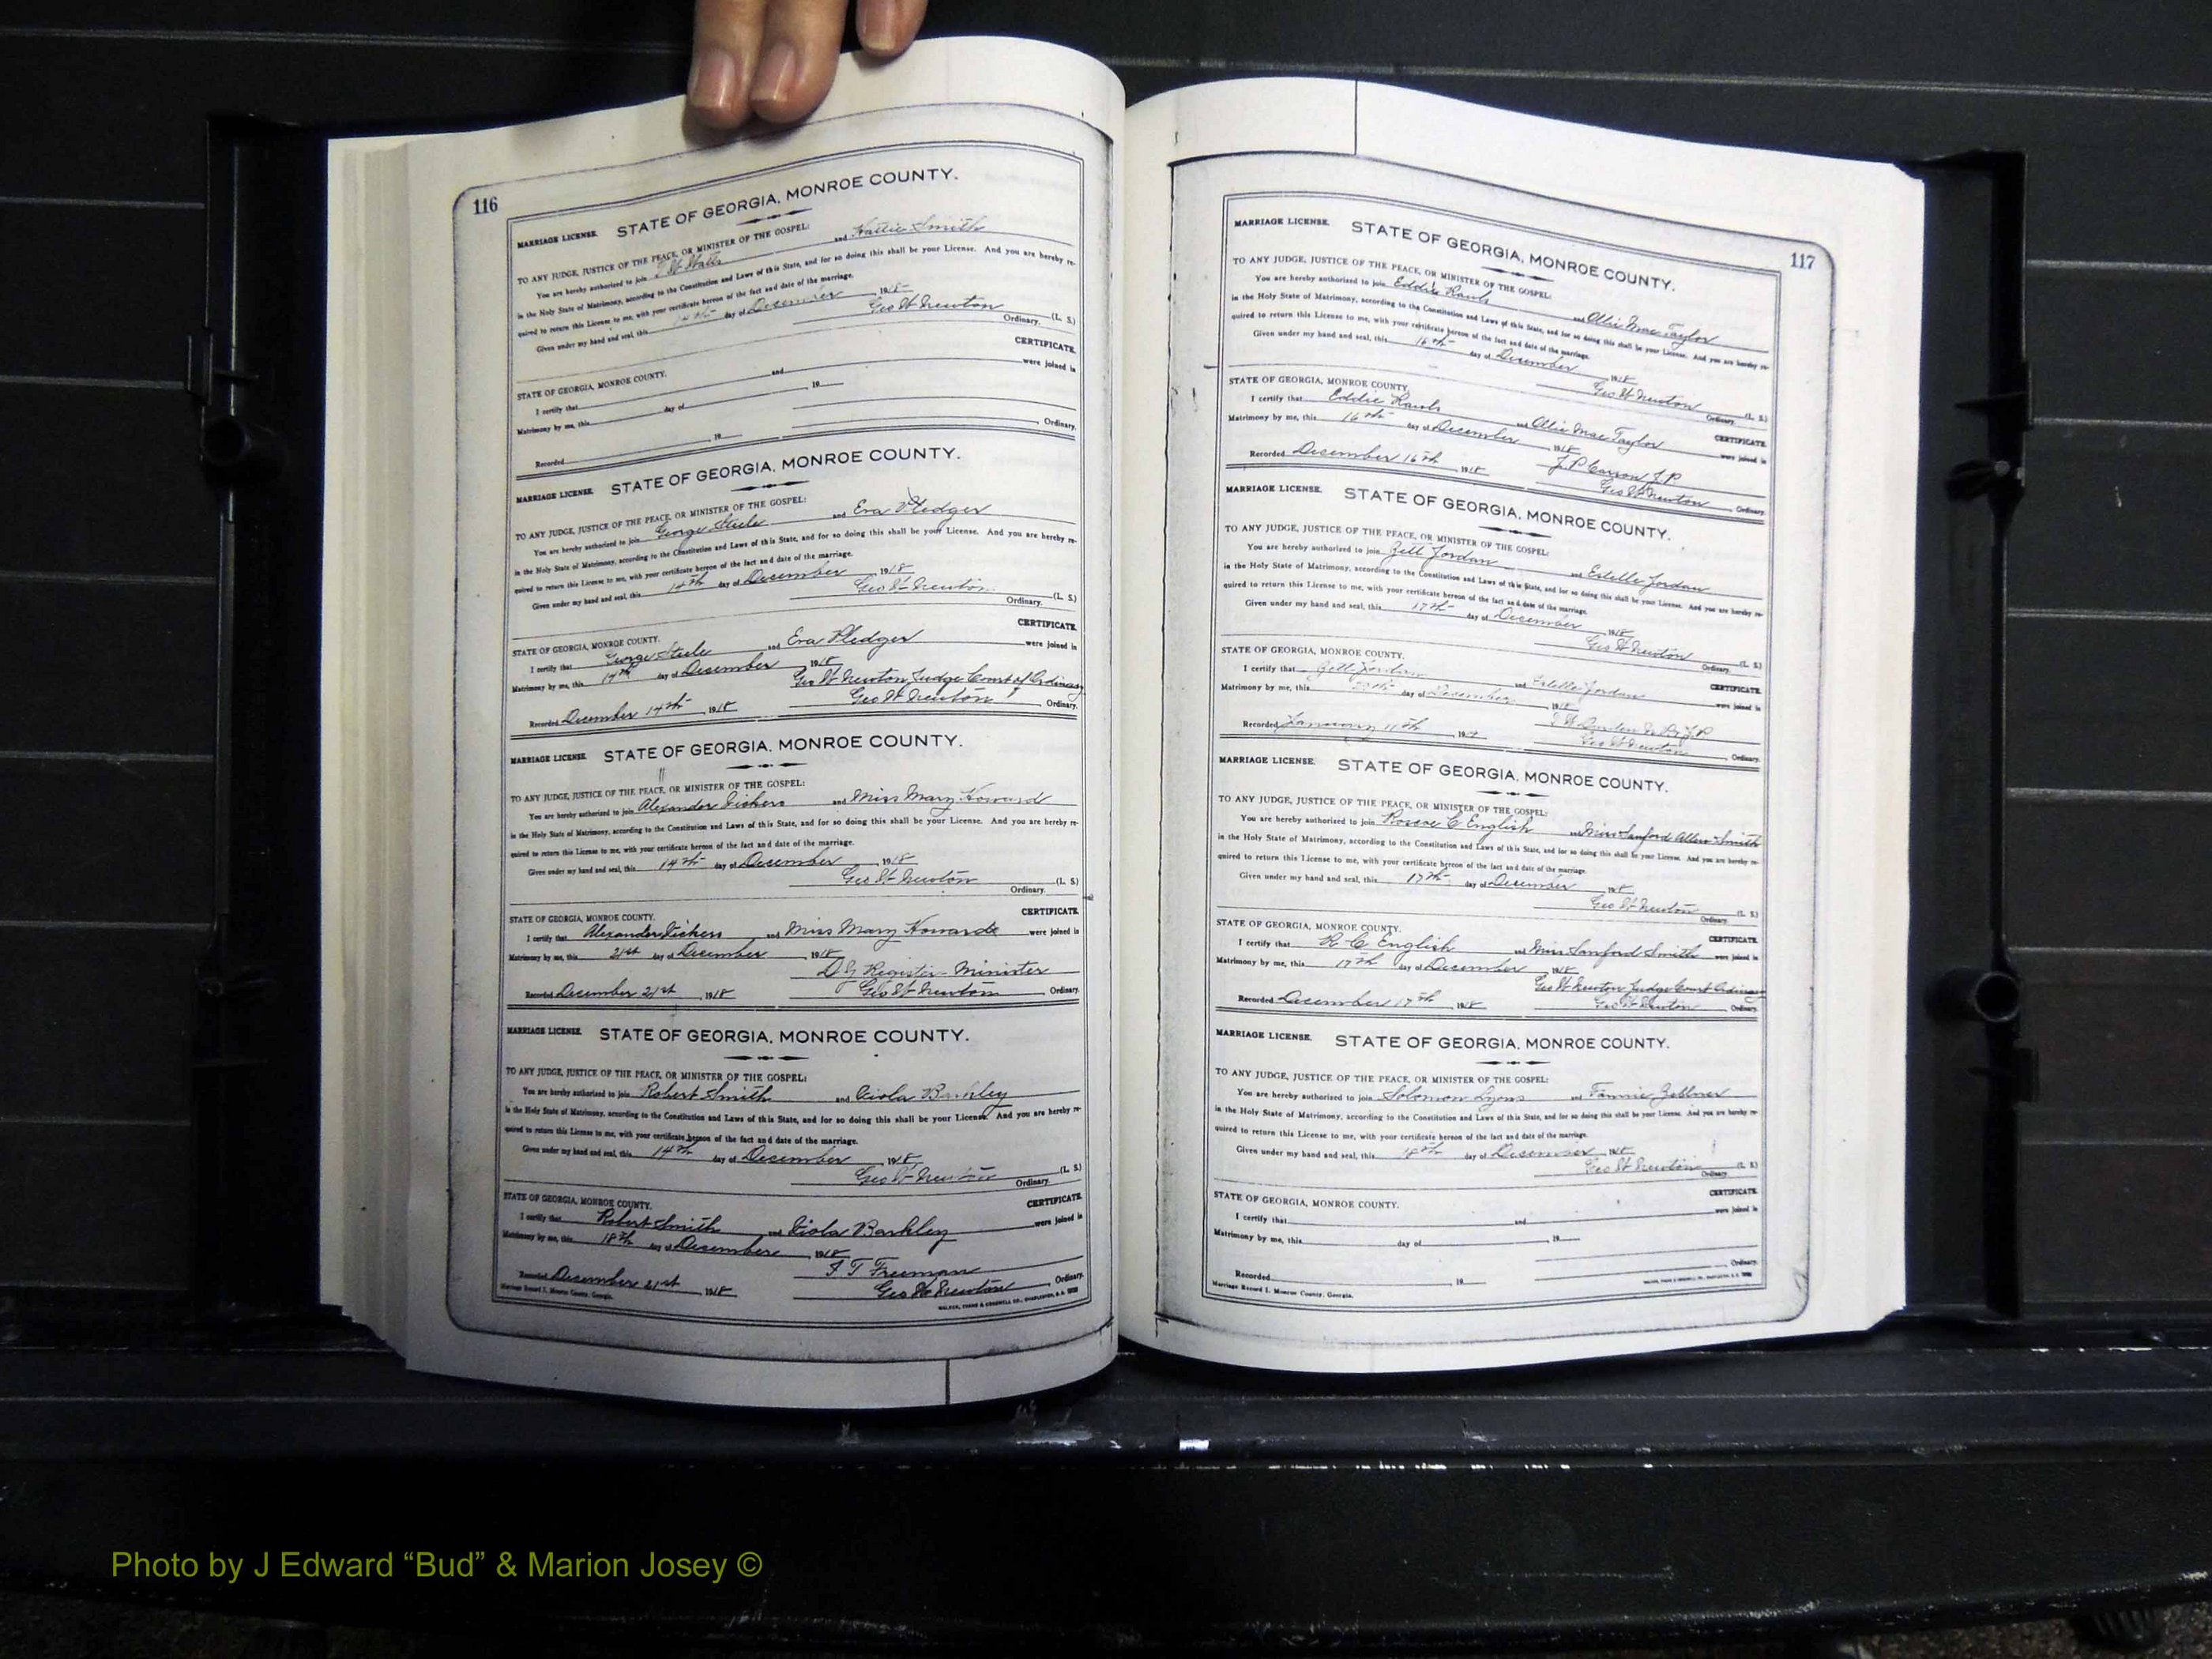 116
MARRIAGE LICENSE. STATE OF GEORGIA, MONROE COUNTY.
TO ANY JUDGE, JUSTICE OF THE PEACE, OR MINISTER OF THE GOSPEL:
You are hereby authorized to join and Hattie Smith
in the Holy State of Matrimony, according to the Constitution and Laws of this State, and for so doing this shall be your License. And you are hereby re-
quired to return this License to me, with your certificate hereon of the fact and date of the marriage.
Given under my hand and seal, this 14th day of December, 1918
Geo W Newton (L. S.)
Ordinary.
CERTIFICATE.
STATE OF GEORGIA, MONROE COUNTY.
I certify that and were joined in
Matrimony by me, this day of , 19
Recorded , 19 Ordinary.
MARRIAGE LICENSE. STATE OF GEORGIA, MONROE COUNTY.
TO ANY JUDGE, JUSTICE OF THE PEACE, OR MINISTER OF THE GOSPEL:
You are hereby authorized to join George Steele and Eva Pledger
in the Holy State of Matrimony, according to the Constitution and Laws of this State, and for so doing this shall be your License. And you are hereby re-
quired to return this License to me, with your certificate hereon of the fact and date of the marriage.
Given under my hand and seal, this 14th day of December, 1918
Geo W Newton (L. S.)
Ordinary.
CERTIFICATE.
STATE OF GEORGIA, MONROE COUNTY.
I certify that George Steele and Eva Pledger were joined in
Matrimony by me, this 14th day of December, 1918
Geo W Newton, Judge Court of Ordinary
Recorded December 14th, 1918 Geo W Newton Ordinary.
MARRIAGE LICENSE. STATE OF GEORGIA, MONROE COUNTY.
TO ANY JUDGE, JUSTICE OF THE PEACE, OR MINISTER OF THE GOSPEL:
You are hereby authorized to join Alexander Vickers and Miss Mary Howard
in the Holy State of Matrimony, according to the Constitution and Laws of this State, and for so doing this shall be your License. And you are hereby re-
quired to return this License to me, with your certificate hereon of the fact and date of the marriage.
Given under my hand and seal, this 14th day of December, 1918
Geo W Newton (L. S.)
Ordinary.
CERTIFICATE.
STATE OF GEORGIA, MONROE COUNTY.
I certify that Alexander Vickers and Miss Mary Howard were joined in
Matrimony by me, this 21st day of December, 1918
D G Register - Minister
Recorded December 21st, 1918 Geo W Newton Ordinary.
MARRIAGE LICENSE. STATE OF GEORGIA, MONROE COUNTY.
TO ANY JUDGE, JUSTICE OF THE PEACE, OR MINISTER OF THE GOSPEL:
You are hereby authorized to join Robert Smith and Viola Barkley
in the Holy State of Matrimony, according to the Constitution and Laws of this State, and for so doing this shall be your License. And you are hereby re-
quired to return this License to me, with your certificate hereon of the fact and date of the marriage.
Given under my hand and seal, this 14th day of December, 1918
Geo W Newton (L. S.)
Ordinary.
CERTIFICATE.
STATE OF GEORGIA, MONROE COUNTY.
I certify that Robert Smith and Viola Barkley were joined in
Matrimony by me, this 18th day of December, 1918
T Freeman
Recorded December 21st, 1918 Geo W Newton Ordinary.
Marriage Record I. Monroe County, Georgia.
WALKER, EVANS & COGSWELL CO., CHARLESTON, S. C.
117
MARRIAGE LICENSE. STATE OF GEORGIA, MONROE COUNTY.
TO ANY JUDGE, JUSTICE OF THE PEACE, OR MINISTER OF THE GOSPEL:
You are hereby authorized to join Eddie Rawls and Ollie Mae Taylor
in the Holy State of Matrimony, according to the Constitution and Laws of this State, and for so doing this shall be your License. And you are hereby re-
quired to return this License to me, with your certificate hereon of the fact and date of the marriage.
Given under my hand and seal, this 16th day of December, 1918
Geo W Newton (L. S.)
Ordinary.
CERTIFICATE.
STATE OF GEORGIA, MONROE COUNTY.
I certify that Eddie Rawls and Ollie Mae Taylor were joined in
Matrimony by me, this 16th day of December, 1918
J. P. Carson J.P
Recorded December 16th, 1918 Geo W Newton Ordinary.
MARRIAGE LICENSE. STATE OF GEORGIA, MONROE COUNTY.
TO ANY JUDGE, JUSTICE OF THE PEACE, OR MINISTER OF THE GOSPEL:
You are hereby authorized to join Jordan and Estelle Jordan
in the Holy State of Matrimony, according to the Constitution and Laws of this State, and for so doing this shall be your License. And you are hereby re-
quired to return this License to me, with your certificate hereon of the fact and date of the marriage.
Given under my hand and seal, this 17th day of December, 1918
Geo W Newton (L. S.)
Ordinary.
CERTIFICATE.
STATE OF GEORGIA, MONROE COUNTY.
I certify that Jordan and Estelle Jordan were joined in
Matrimony by me, this day of December, 1918
Recorded January 11th, 19 Geo W Newton Ordinary.
MARRIAGE LICENSE. STATE OF GEORGIA, MONROE COUNTY.
TO ANY JUDGE, JUSTICE OF THE PEACE, OR MINISTER OF THE GOSPEL:
You are hereby authorized to join Roscoe C English and Miss Sanford Allen Smith
in the Holy State of Matrimony, according to the Constitution and Laws of this State, and for so doing this shall be your License. And you are hereby re-
quired to return this License to me, with your certificate hereon of the fact and date of the marriage.
Given under my hand and seal, this 17th day of December, 1918
Geo W Newton (L. S.)
Ordinary.
CERTIFICATE.
STATE OF GEORGIA, MONROE COUNTY.
I certify that R C English and Miss Sanford Smith were joined in
Matrimony by me, this 17th day of December, 1918
Geo W Newton Judge Court Ordinary
Recorded December 17th, 1918 Geo W Newton Ordinary.
MARRIAGE LICENSE. STATE OF GEORGIA, MONROE COUNTY.
TO ANY JUDGE, JUSTICE OF THE PEACE, OR MINISTER OF THE GOSPEL:
You are hereby authorized to join Solomon Lyons and Fannie Zellner
in the Holy State of Matrimony, according to the Constitution and Laws of this State, and for so doing this shall be your License. And you are hereby re-
quired to return this License to me, with your certificate hereon of the fact and date of the marriage.
Given under my hand and seal, this 18th day of December, 1918
Geo W Newton (L. S.)
Ordinary.
CERTIFICATE.
STATE OF GEORGIA, MONROE COUNTY.
I certify that and were joined in
Matrimony by me, this day of , 19
Recorded , 19 Ordinary.
Marriage Record I. Monroe County, Georgia.
Photo by J Edward “Bud” & Marion Josey ©